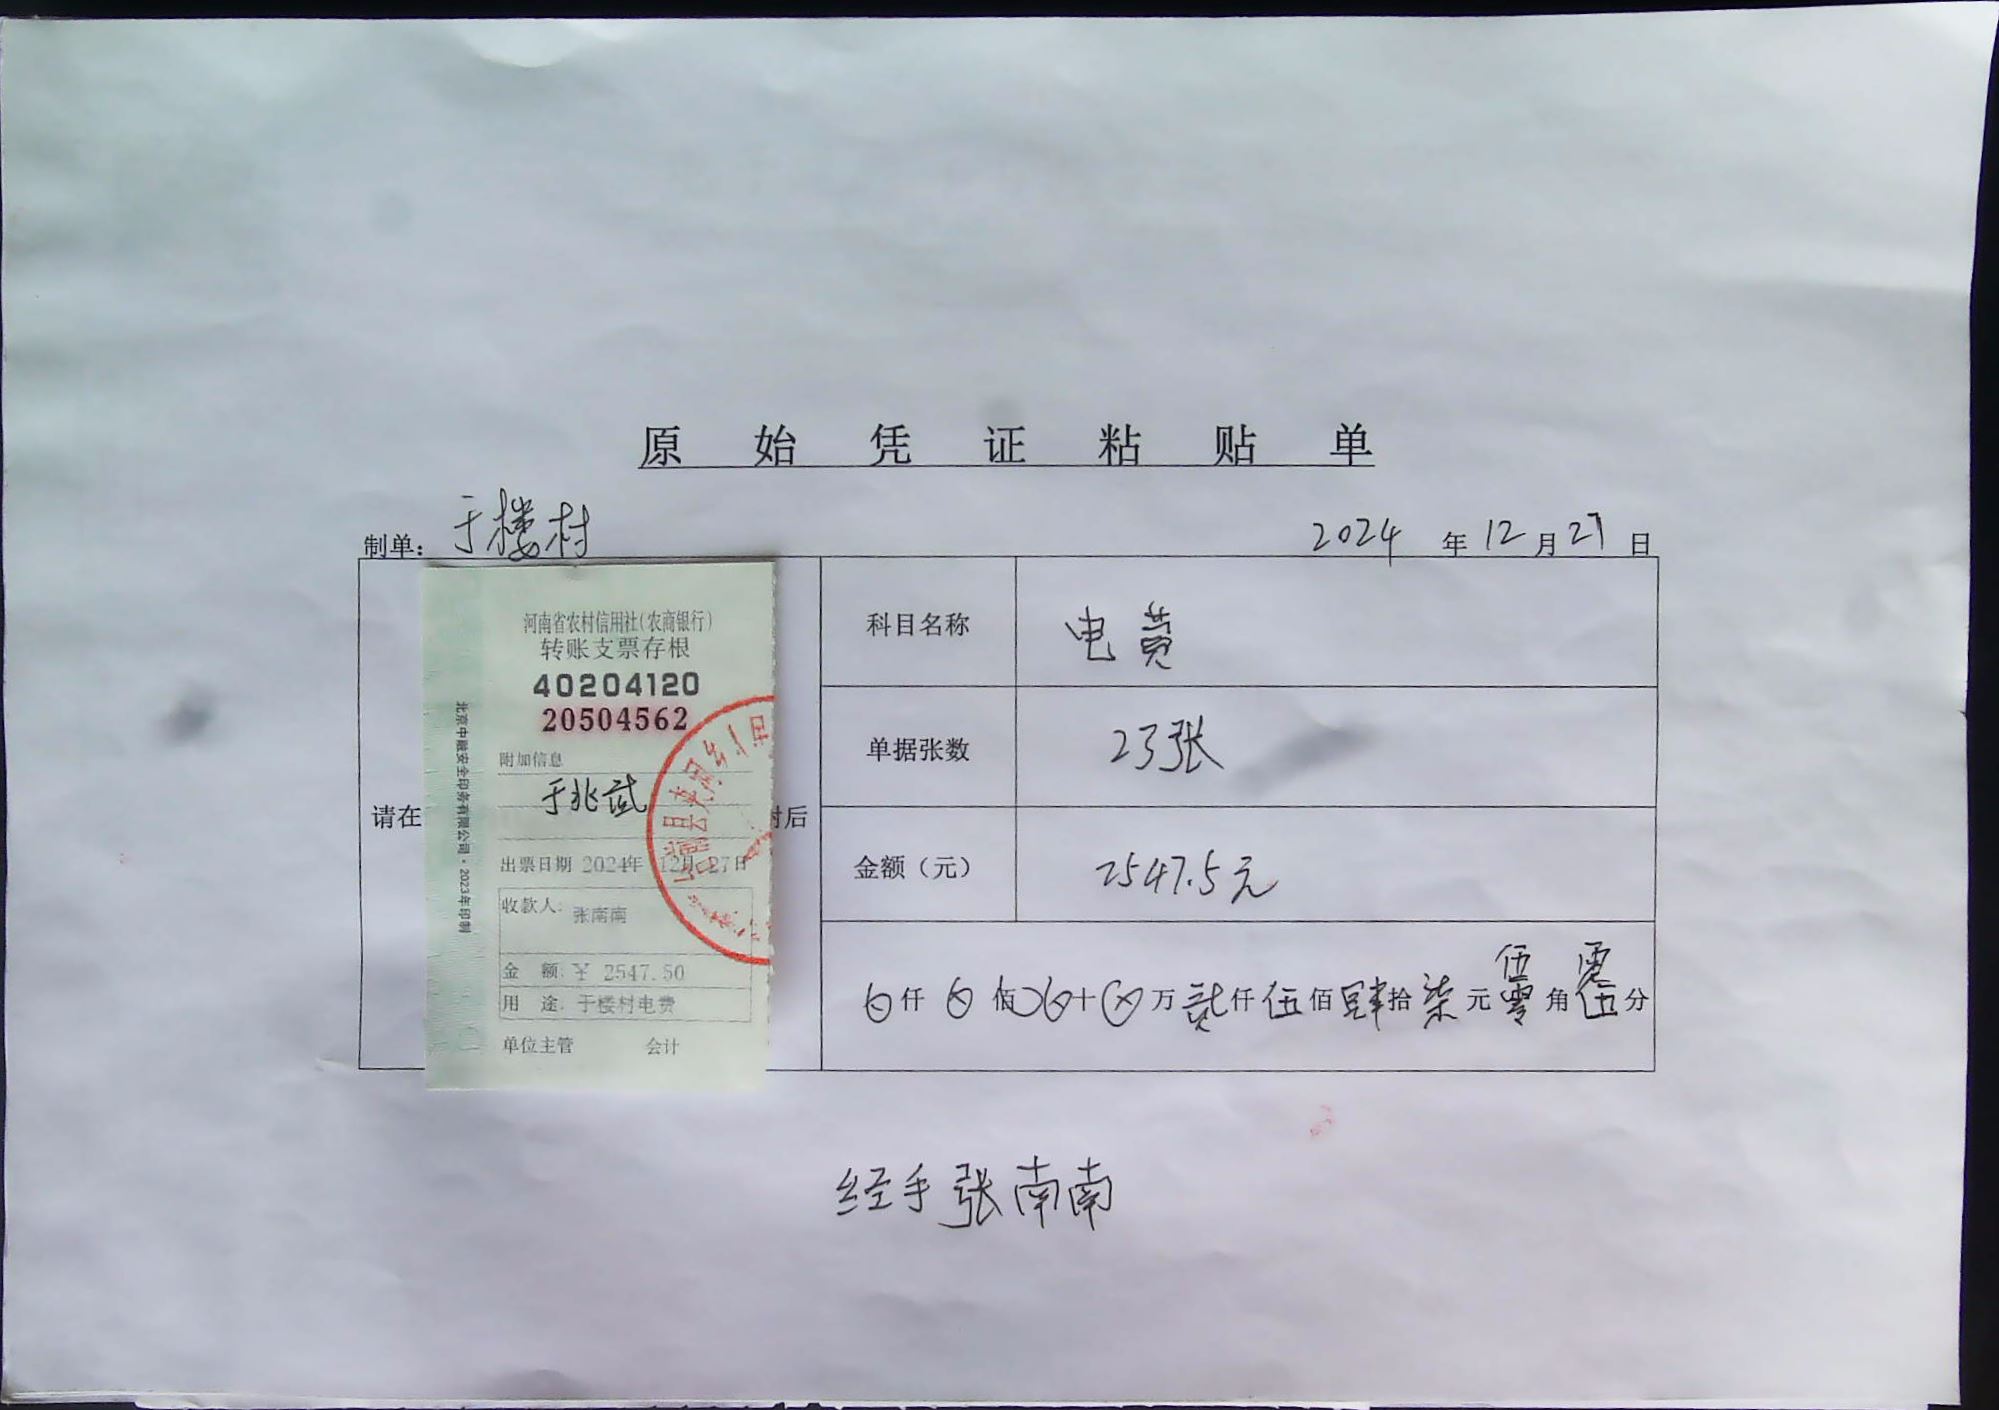 原始凭证粘贴单
制单：于楼村
2024年12月27日
请在
附后
河南省农村信用社(农商银行)
转账支票存根
40204120
20504562
附加信息
于兆武
出票日期 2024年 12月 27日
收款人: 张南南
金 额: ¥ 2547.50
用 途: 于楼村电费
单位主管 会计
北京中融安全印务有限公司·2023年印制
科目名称 电费
单据张数 23张
金额（元） 2547.5元
伍 零
仟 佰 十 万贰仟伍佰肆拾柒元零角伍分
经手张南南